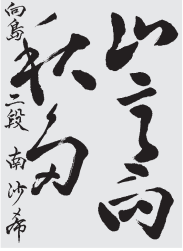 山向
秋
向島 二段 南沙希